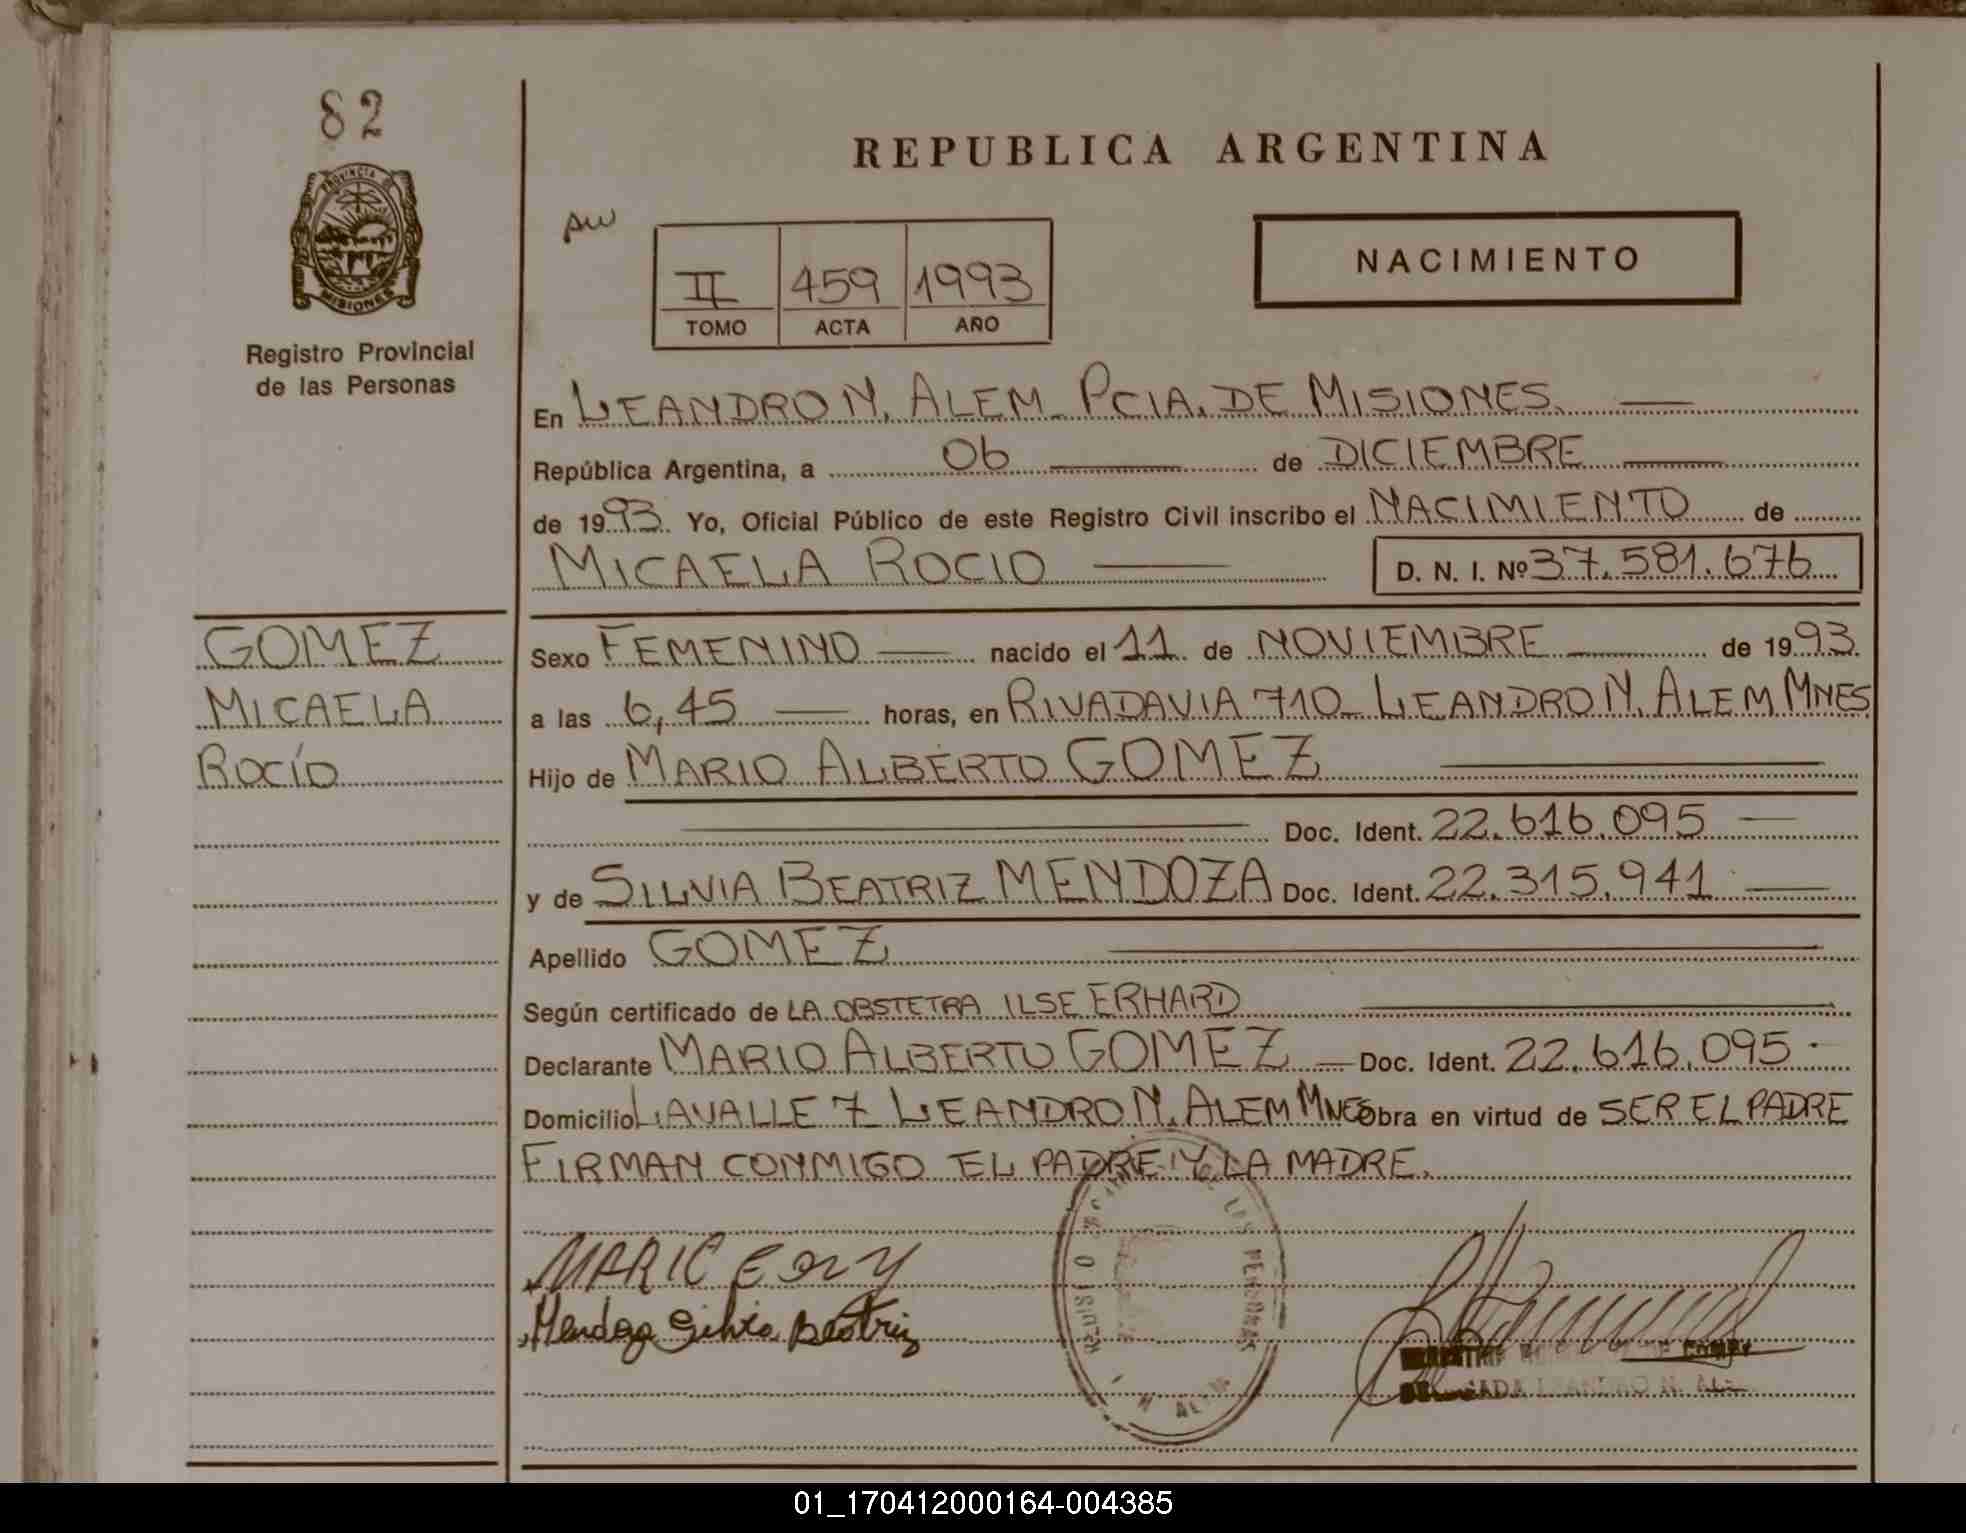 82
PROVINCIA DE
MISIONES
Registro Provincial
de las Personas
REPUBLICA ARGENTINA
NACIMIENTO
II 459 1993
TOMO ACTA AÑO
En LEANDRO N. ALEM - PCIA. DE MISIONES.
República Argentina, a 06 de DICIEMBRE
de 1993. Yo, Oficial Público de este Registro Civil inscribo el NACIMIENTO de
MICAELA ROCIO D. N. I. Nº 37.581.676
GOMEZ
MICAELA
ROCÍO
Sexo FEMENINO nacido el 11 de NOVIEMBRE de 1993.
a las 6,45 horas, en RIVADAVIA 710 - LEANDRO N. ALEM MNES
Hijo de MARIO ALBERTO GOMEZ
Doc. Ident. 22.616.095
y de SILVIA BEATRIZ MENDOZA Doc. Ident. 22.315.941
Apellido GOMEZ
Según certificado de LA OBSTETRA ILSE ERHARD
Declarante MARIO ALBERTO GOMEZ Doc. Ident. 22.616.095
Domicilio LAVALLE 7 LEANDRO N. ALEM MNES Obra en virtud de SER EL PADRE
FIRMAN CONMIGO EL PADRE Y LA MADRE.
Mendoza Silvia Beatriz
LAS PERSONAS
01_170412000164-004385